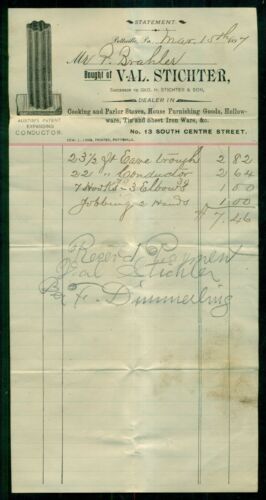 STATEMENT.
Pottsville, Pa. Mar 15th 1897
Mr P. Brahler
Bought of VAL. STICHTER,
SUCCESSOR TO GEO. H. STICHTER & SON,
DEALER IN
Cooking and Parlor Stoves, House Furnishing Goods, Hollow-
ware, Tin and Sheet Iron Ware, &c.
No. 13 SOUTH CENTRE STREET.
AUSTIN'S PATENT
EXPANDING
CONDUCTOR.
PRINTER, POTTSVILLE.
23 1/2 ft Eave trough 2 82
22 " Conductor 2 64
7 Hooks - 3 Elbows 1 00
Jobbing 2 hands 1 00
$ 7.46
Rec'd Payment
Val Stichler
Per F. Dimmerling